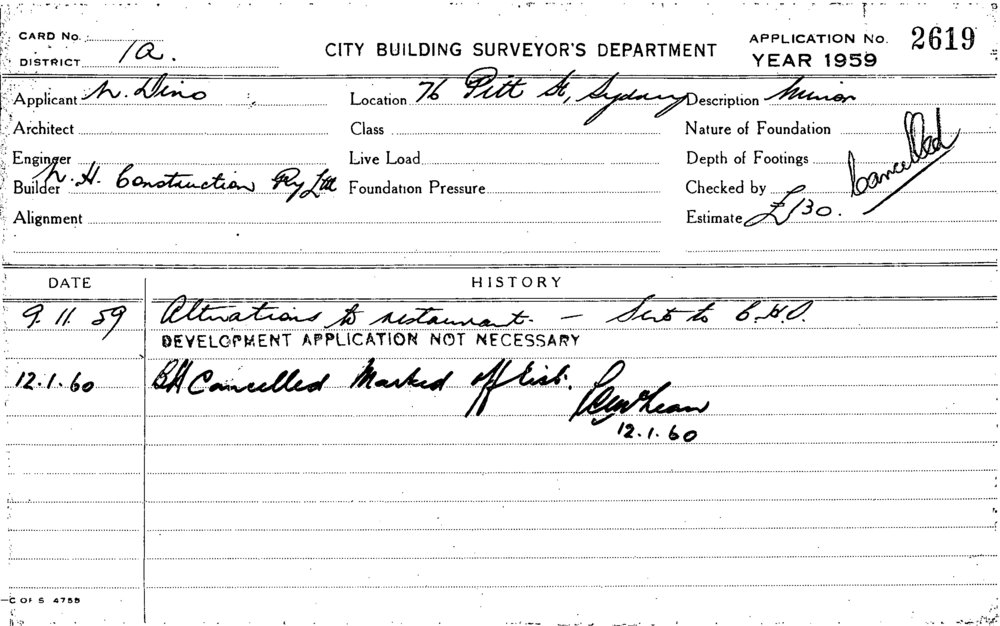 CARD No.
DISTRICT 1a.
CITY BUILDING SURVEYOR'S DEPARTMENT
APPLICATION No. 2619
YEAR 1959
Applicant N. Dino
Location 76 Pitt St, Sydney
Description Minor
Architect
Class
Nature of Foundation
Engineer
Live Load
Depth of Footings
Builder N. H. Construction Pty Ltd
Foundation Pressure
Checked by
Cancelled
Alignment
Estimate £130.
DATE HISTORY
9. 11. 59 Alterations to restaurant. — Sent to C.H.O.
DEVELOPMENT APPLICATION NOT NECESSARY
12.1.60 BA Cancelled Marked off list.
12.1.60
C OF S 475B